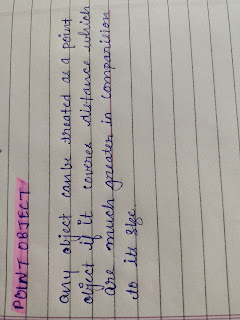 POINT OBJECT
any object can be treated as a point
object if it coveres distance which
are much greater in comparision
to its size.